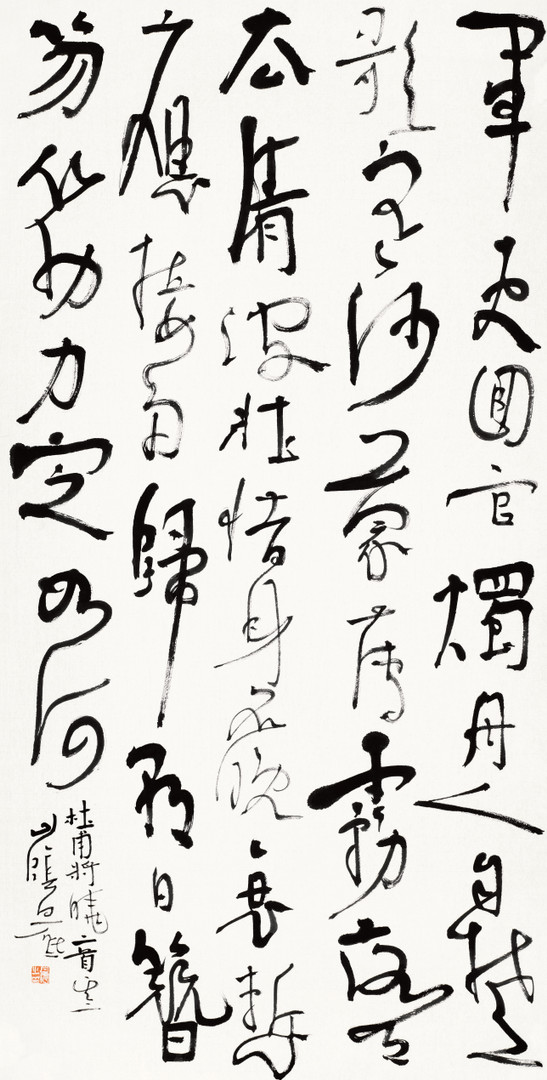 軍吏回官燭舟人自楚
歌寒沙蒙薄霧落月
去清波壯惜身名晚衰慚
應接多歸朝日簪
笏筋力定如何
杜甫將曉二首之二
山陰